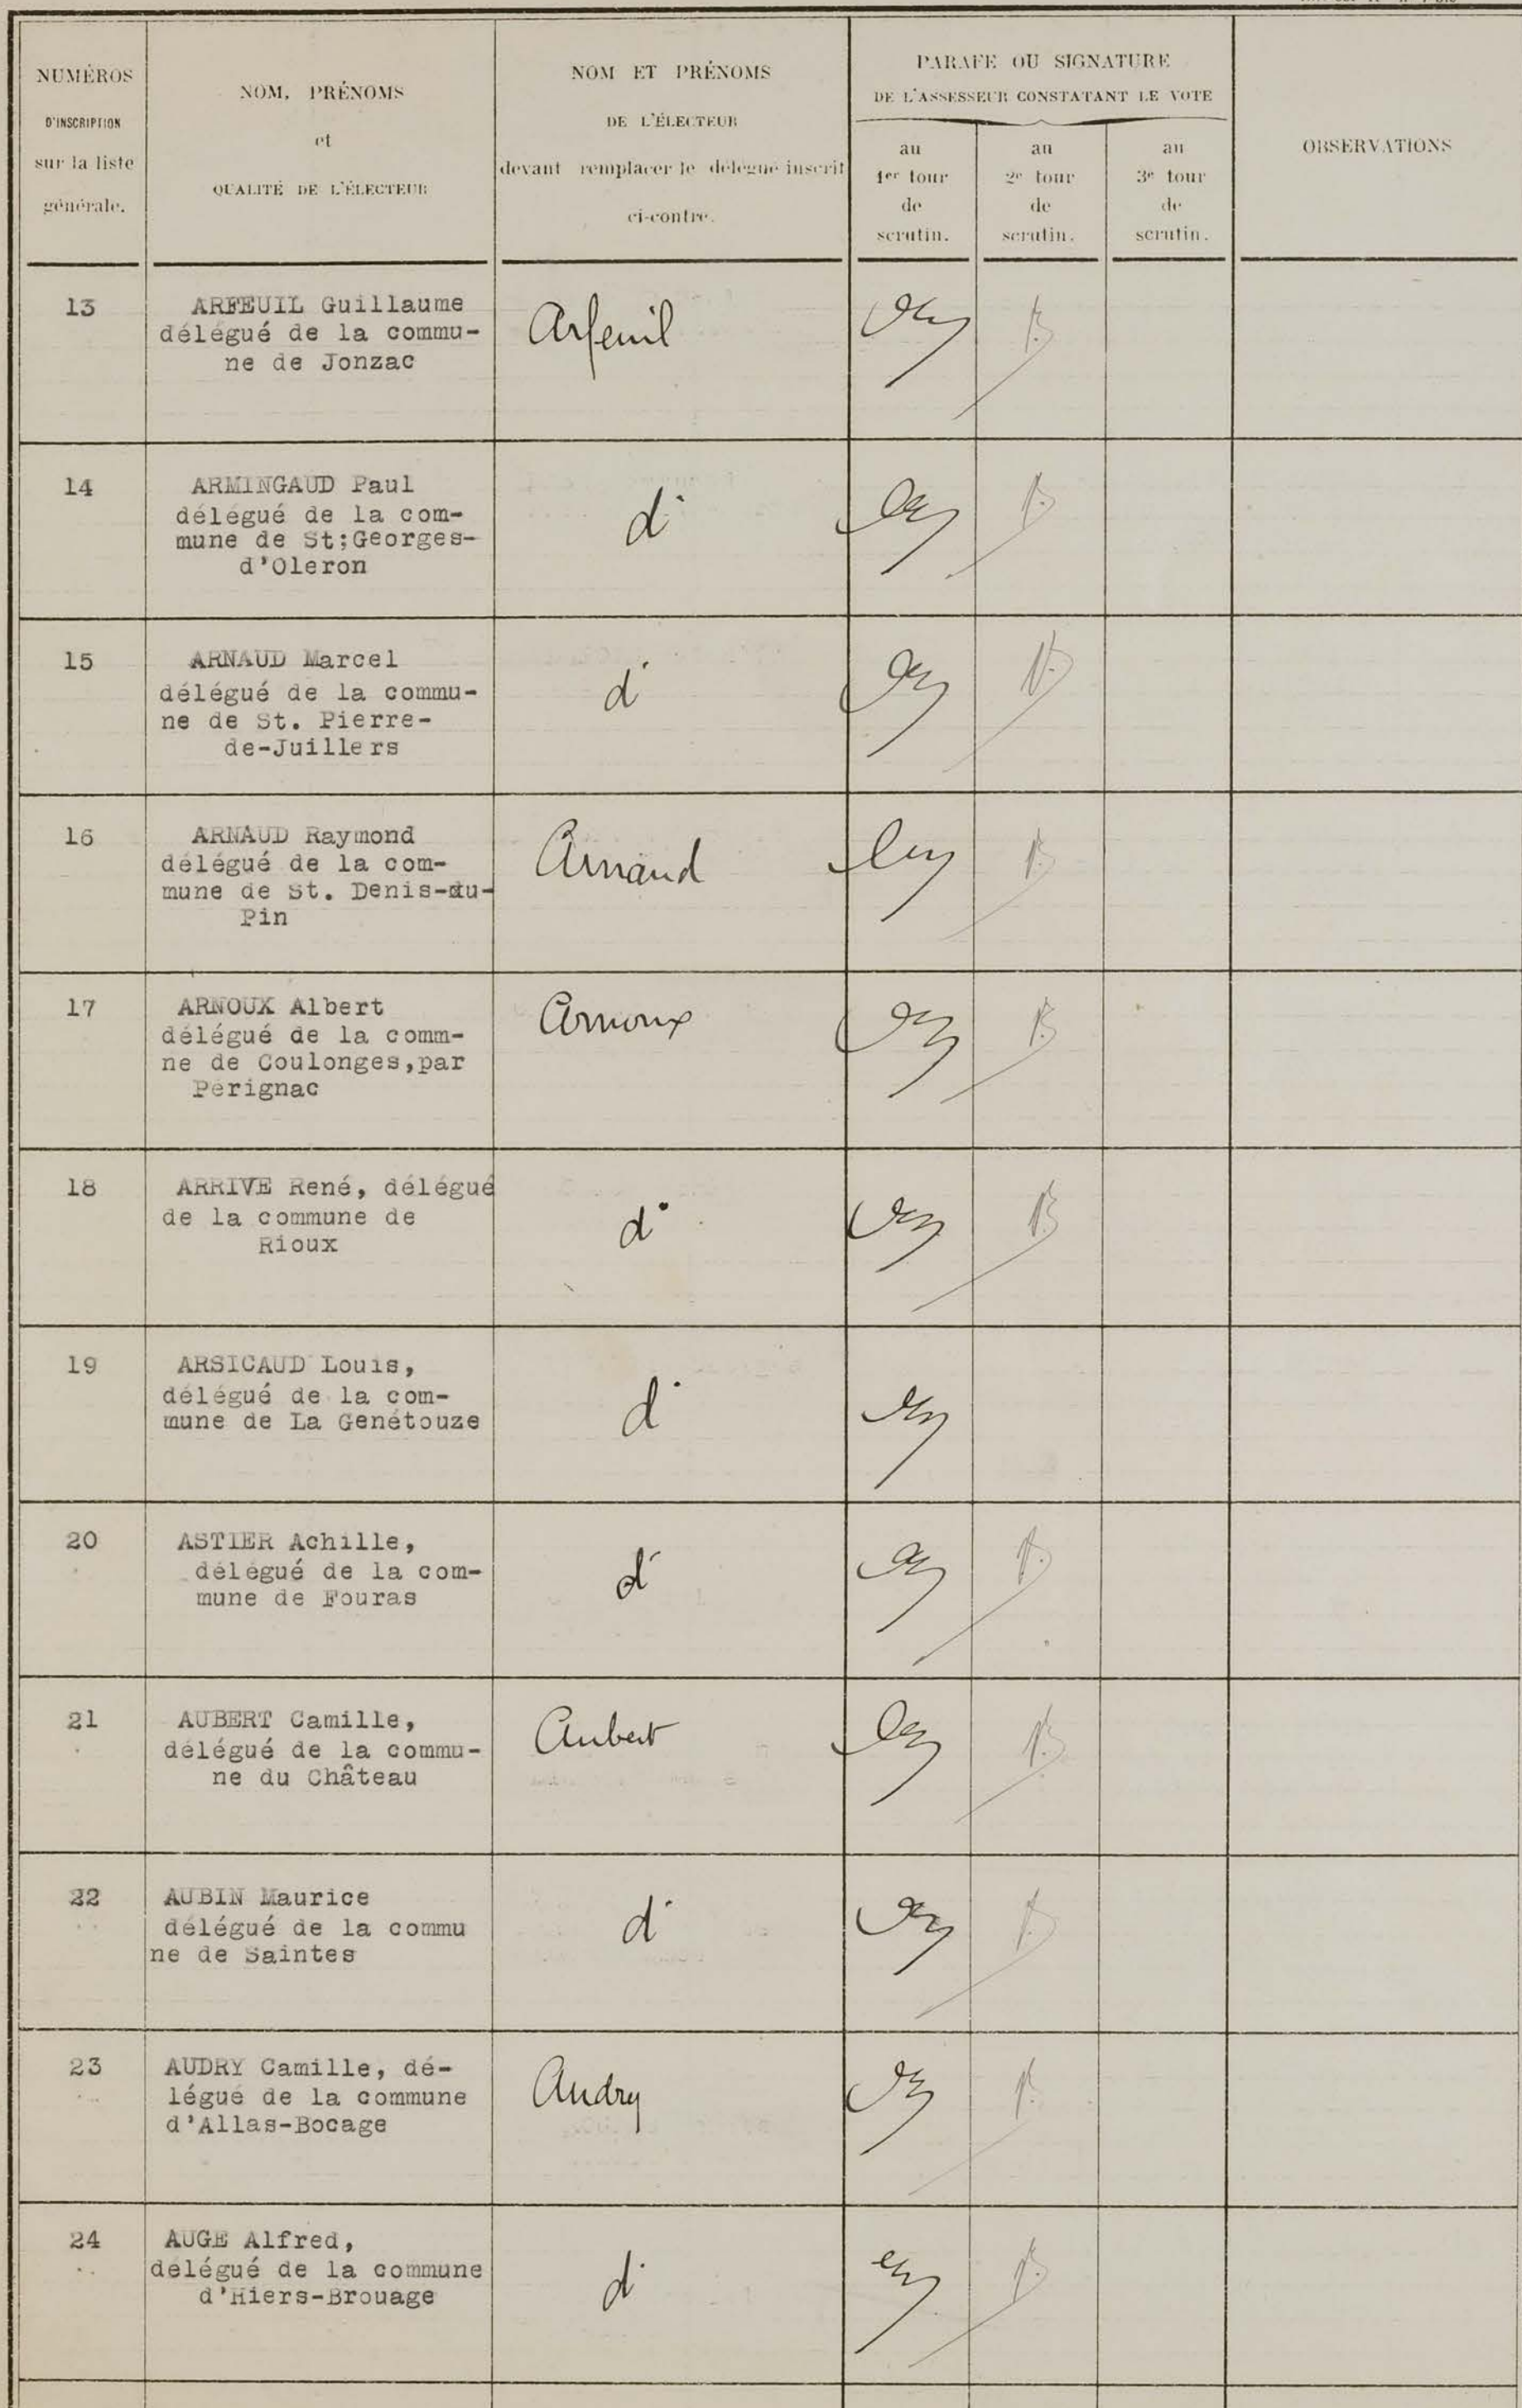 NUMÉROS
D'INSCRIPTION
sur la liste
générale.
NOM, PRÉNOMS
et
QUALITÉ DE L'ÉLECTEUR
NOM ET PRÉNOMS
DE L'ÉLECTEUR
devant remplacer le délégué inscrit
ci-contre.
PARAFE OU SIGNATURE
DE L'ASSESSEUR CONSTATANT LE VOTE
au
1er tour
de
scrutin.
au
2e tour
de
scrutin.
au
3e tour
de
scrutin.
OBSERVATIONS
13
ARFEUIL Guillaume
délégué de la commu-
ne de Jonzac
Arfeuil
14
ARMINGAUD Paul
délégué de la com-
mune de St;Georges-
d'Oleron
d°
15
ARNAUD Marcel
délégué de la commu-
ne de St. Pierre-
de-Juillers
d°
16
ARNAUD Raymond
délégué de la com-
mune de St. Denis-du-
Pin
Arnaud
17
ARNOUX Albert
délégué de la comm-
ne de Coulonges,par
Pérignac
Arnoux
18
ARRIVE René, délégué
de la commune de
Rioux
d°
19
ARSICAUD Louis,
délégué de la com-
mune de La Genétouze
d°
20
ASTIER Achille,
délégué de la com-
mune de Fouras
d°
21
AUBERT Camille,
délégué de la commu-
ne du Château
Aubert
22
AUBIN Maurice
délégué de la commu
ne de Saintes
d°
23
AUDRY Camille, dé-
légué de la commune
d'Allas-Bocage
Audry
24
AUGE Alfred,
délégué de la commune
d'Hiers-Brouage
d°